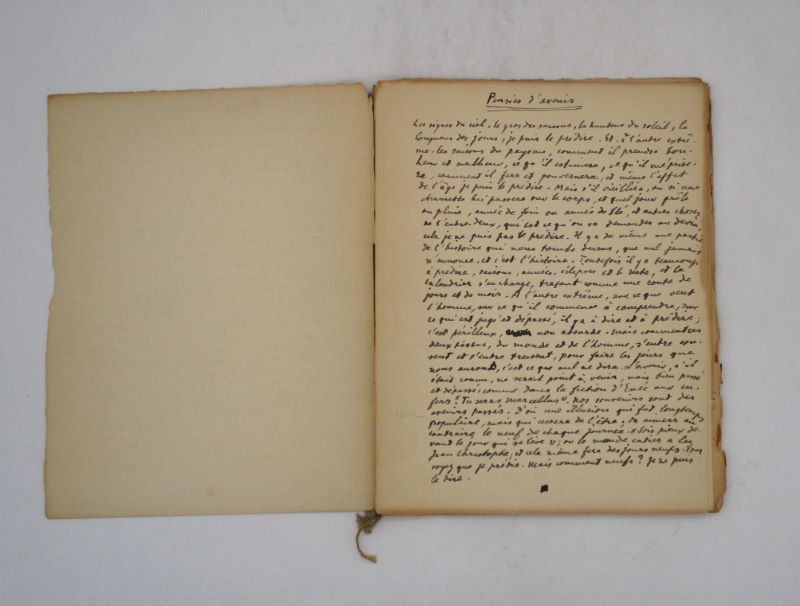 Pensées d'avenir
Les signes du ciel, le gros des saisons, la hauteur du soleil, la
longueur des jours, je puis le prédire. Et à l'autre extrê-
me les saisons du paysan, comment il prendra bon-
heur et malheur, ce qu'il estimera, ce qu'il méprise-
ra, comment il fera et gouvernera, et même l'effet
de l'âge je puis le prédire. Mais s'il vieillira, ou si une
charrette lui passera sur le corps, et quel jour
ou pluie, année de foin ou année de blé, et autres choses
de l'entre-deux, que est-ce qu'on va demander au devin,
cela je ne puis pas le prédire. Il y a de même une partie
de l'histoire qui nous tombe dessus, que nul jamais
n'annonce, et c'est l'histoire. Toutefois il y a beaucoup
à prédire, saisons, années, éclipses et le reste, et le
calendrier s'en charge, traçant comme une route de
jours et de mois. A l'autre extrême, sur ce que veut
l'homme, sur ce qu'il commence à comprendre, sur
ce qui est jugé et dépassé, il y a à dire et à prédire;
c'est périlleux, non absurde. Mais comment ces
deux tissus, du monde et de l'homme, s'entre croi-
sent et s'entre tressent, pour faire les jours que
nous aurons, c'est ce que nul ne dira. L'avenir, s'il
était connu, ne serait point à venir, mais bien passé
et dépassé; comme dans la fiction d'Enée aux en-
fers « Tu seras Marcellus ». Nos souvenirs sont des
avenirs passés. D'où une illusion qui fut longtemps
populaire, mais qui cessera de l'être. On aimera au
contraire le neuf de chaque journée. « Sois pieux de-
vant le jour qui se lève »; or le monde entier a lu
Jean Christophe; et cela même fera des jours neufs. Vous
voyez que je prédis. Mais comment neufs? Je ne puis
le dire.